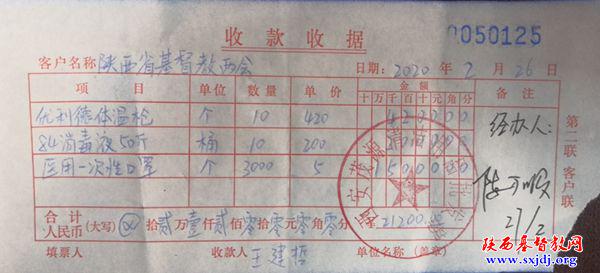 收款收据 0050125
客户名称 陕西省基督教两会 日期: 2020 年 2 月 26 日
项目 单位 数量 单价 金额 备注
十万千百十元角分
优利德体温枪 个 10 420 420000
84消毒液50斤 桶 10 200
医用一次性口罩 个 3000 5
经办人:
27/2
第二联 客户联
合计人民币(大写) ⊗ 拾 贰 万 壹 仟 贰 佰 零 拾 零 元 零 角 零 分 ¥ 21200.00
填票人 收款人 王建哲 单位名称(盖章)
陕西基督教网
www.sxjdj.org